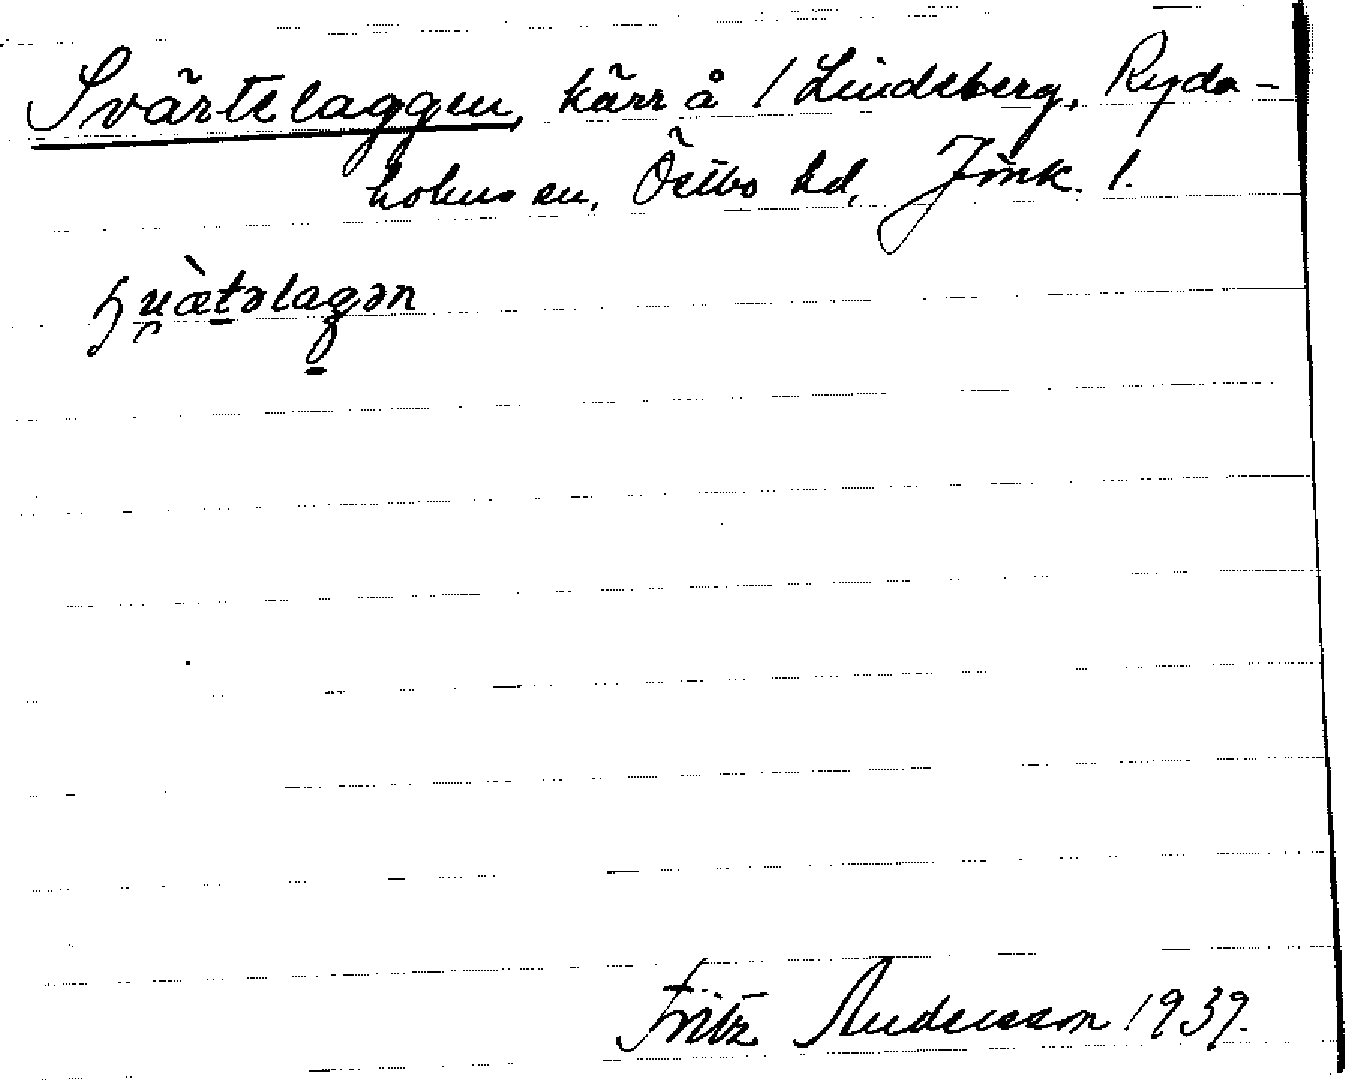 Svärtelaggen, kärr å / Lindeberg, Ryda-
holms sn, Östbo hd, Jönk. l.
ꞩu̯æ̀t̠əlag̠ən
Fritz Andersson 1937.